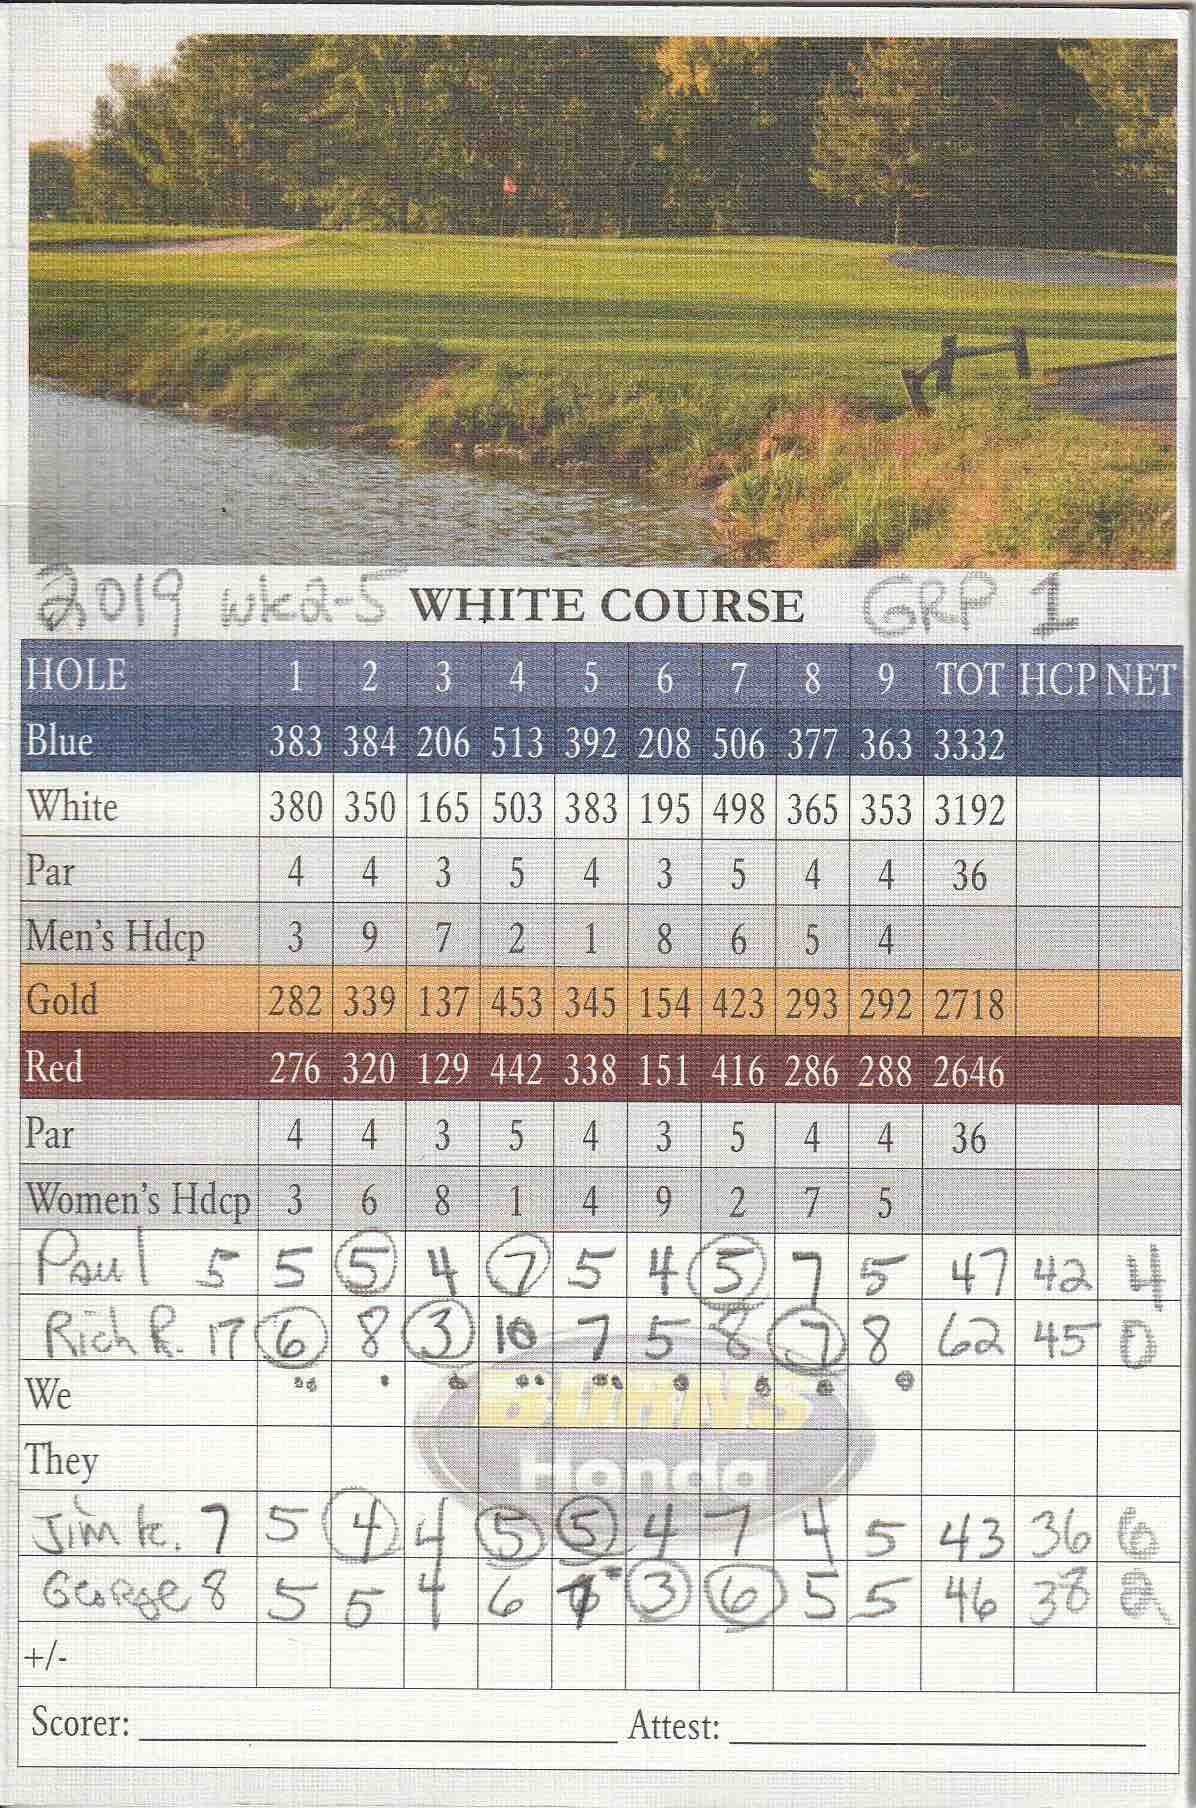 2019 wk2-5 WHITE COURSE GRP 1
HOLE 1 2 3 4 5 6 7 8 9 TOT HCP NET
Blue 383 384 206 513 392 208 506 377 363 3332
White 380 350 165 503 383 195 498 365 353 3192
Par 4 4 3 5 4 3 5 4 4 36
Men's Hdcp 3 9 7 2 1 8 6 5 4
Gold 282 339 137 453 345 154 423 293 292 2718
Red 276 320 129 442 338 151 416 286 288 2646
Par 4 4 3 5 4 3 5 4 4 36
Women's Hdcp 3 6 8 1 4 9 2 7 5
Paul 5 5 5 4 7 5 4 5 7 5 47 42 4
Rich R. 17 6 8 3 10 7 5 8 7 8 62 45 0
We
BURNS
They
Honda
Jim K. 7 5 4 4 5 5 4 7 4 5 43 36 6
George 8 5 5 4 6 3 6 5 5 46 38 2
+/-
Scorer: Attest: